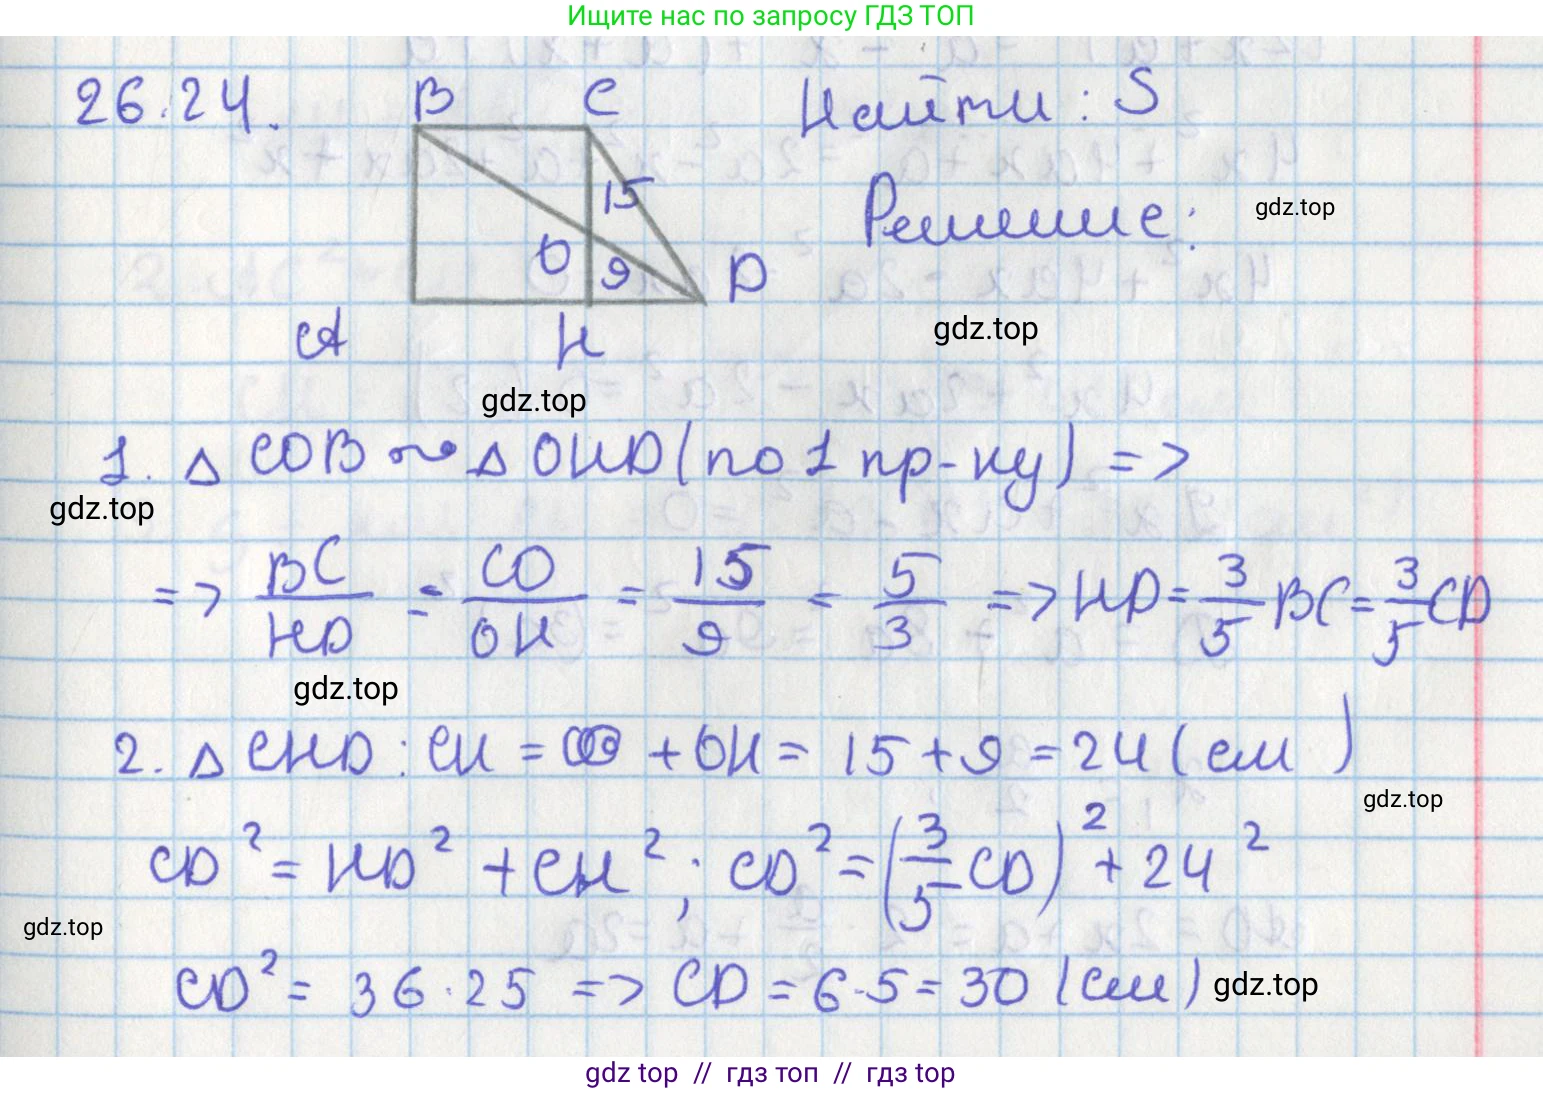 Ищите нас по запросу ГДЗ ТОП
26.24. B C Найти: S
15
Решение: gdz.top
O 9 D
A H gdz.top
gdz.top
1. Δ COB ~ Δ OHD (по 1 пр-ку) =>
gdz.top
=> BC/HD = CO/OH = 15/9 = 5/3 => HD = 3/5 BC = 3/5 CD
gdz.top
2. Δ CHD: CH = CO + OH = 15 + 9 = 24 (см)
gdz.top
CD² = HD² + CH²; CD² = (3/5 CD)² + 24²
gdz.top
CD² = 36·25 => CD = 6·5 = 30 (см) gdz.top
gdz top // гдз топ // гдз top